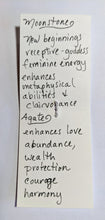 Moonstone
new beginnings
receptive-goddess
feminine energy
enhances
metaphysical
abilities &
clairvoyance
Agate
enhances love
abundance,
wealth
protection
courage
harmony